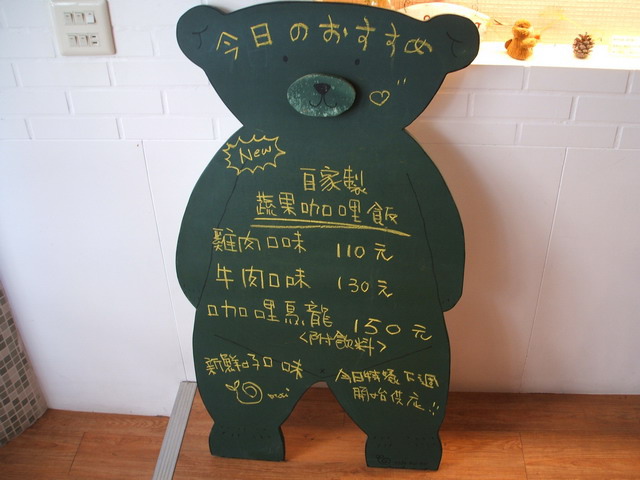 今日のおすすめ
New
自家製
蔬果咖哩飯
雞肉口味 110元
牛肉口味 130元
咖哩烏龍 150元
<附飲料>
新鮮 口味
今日特餐下週
開始供應!!